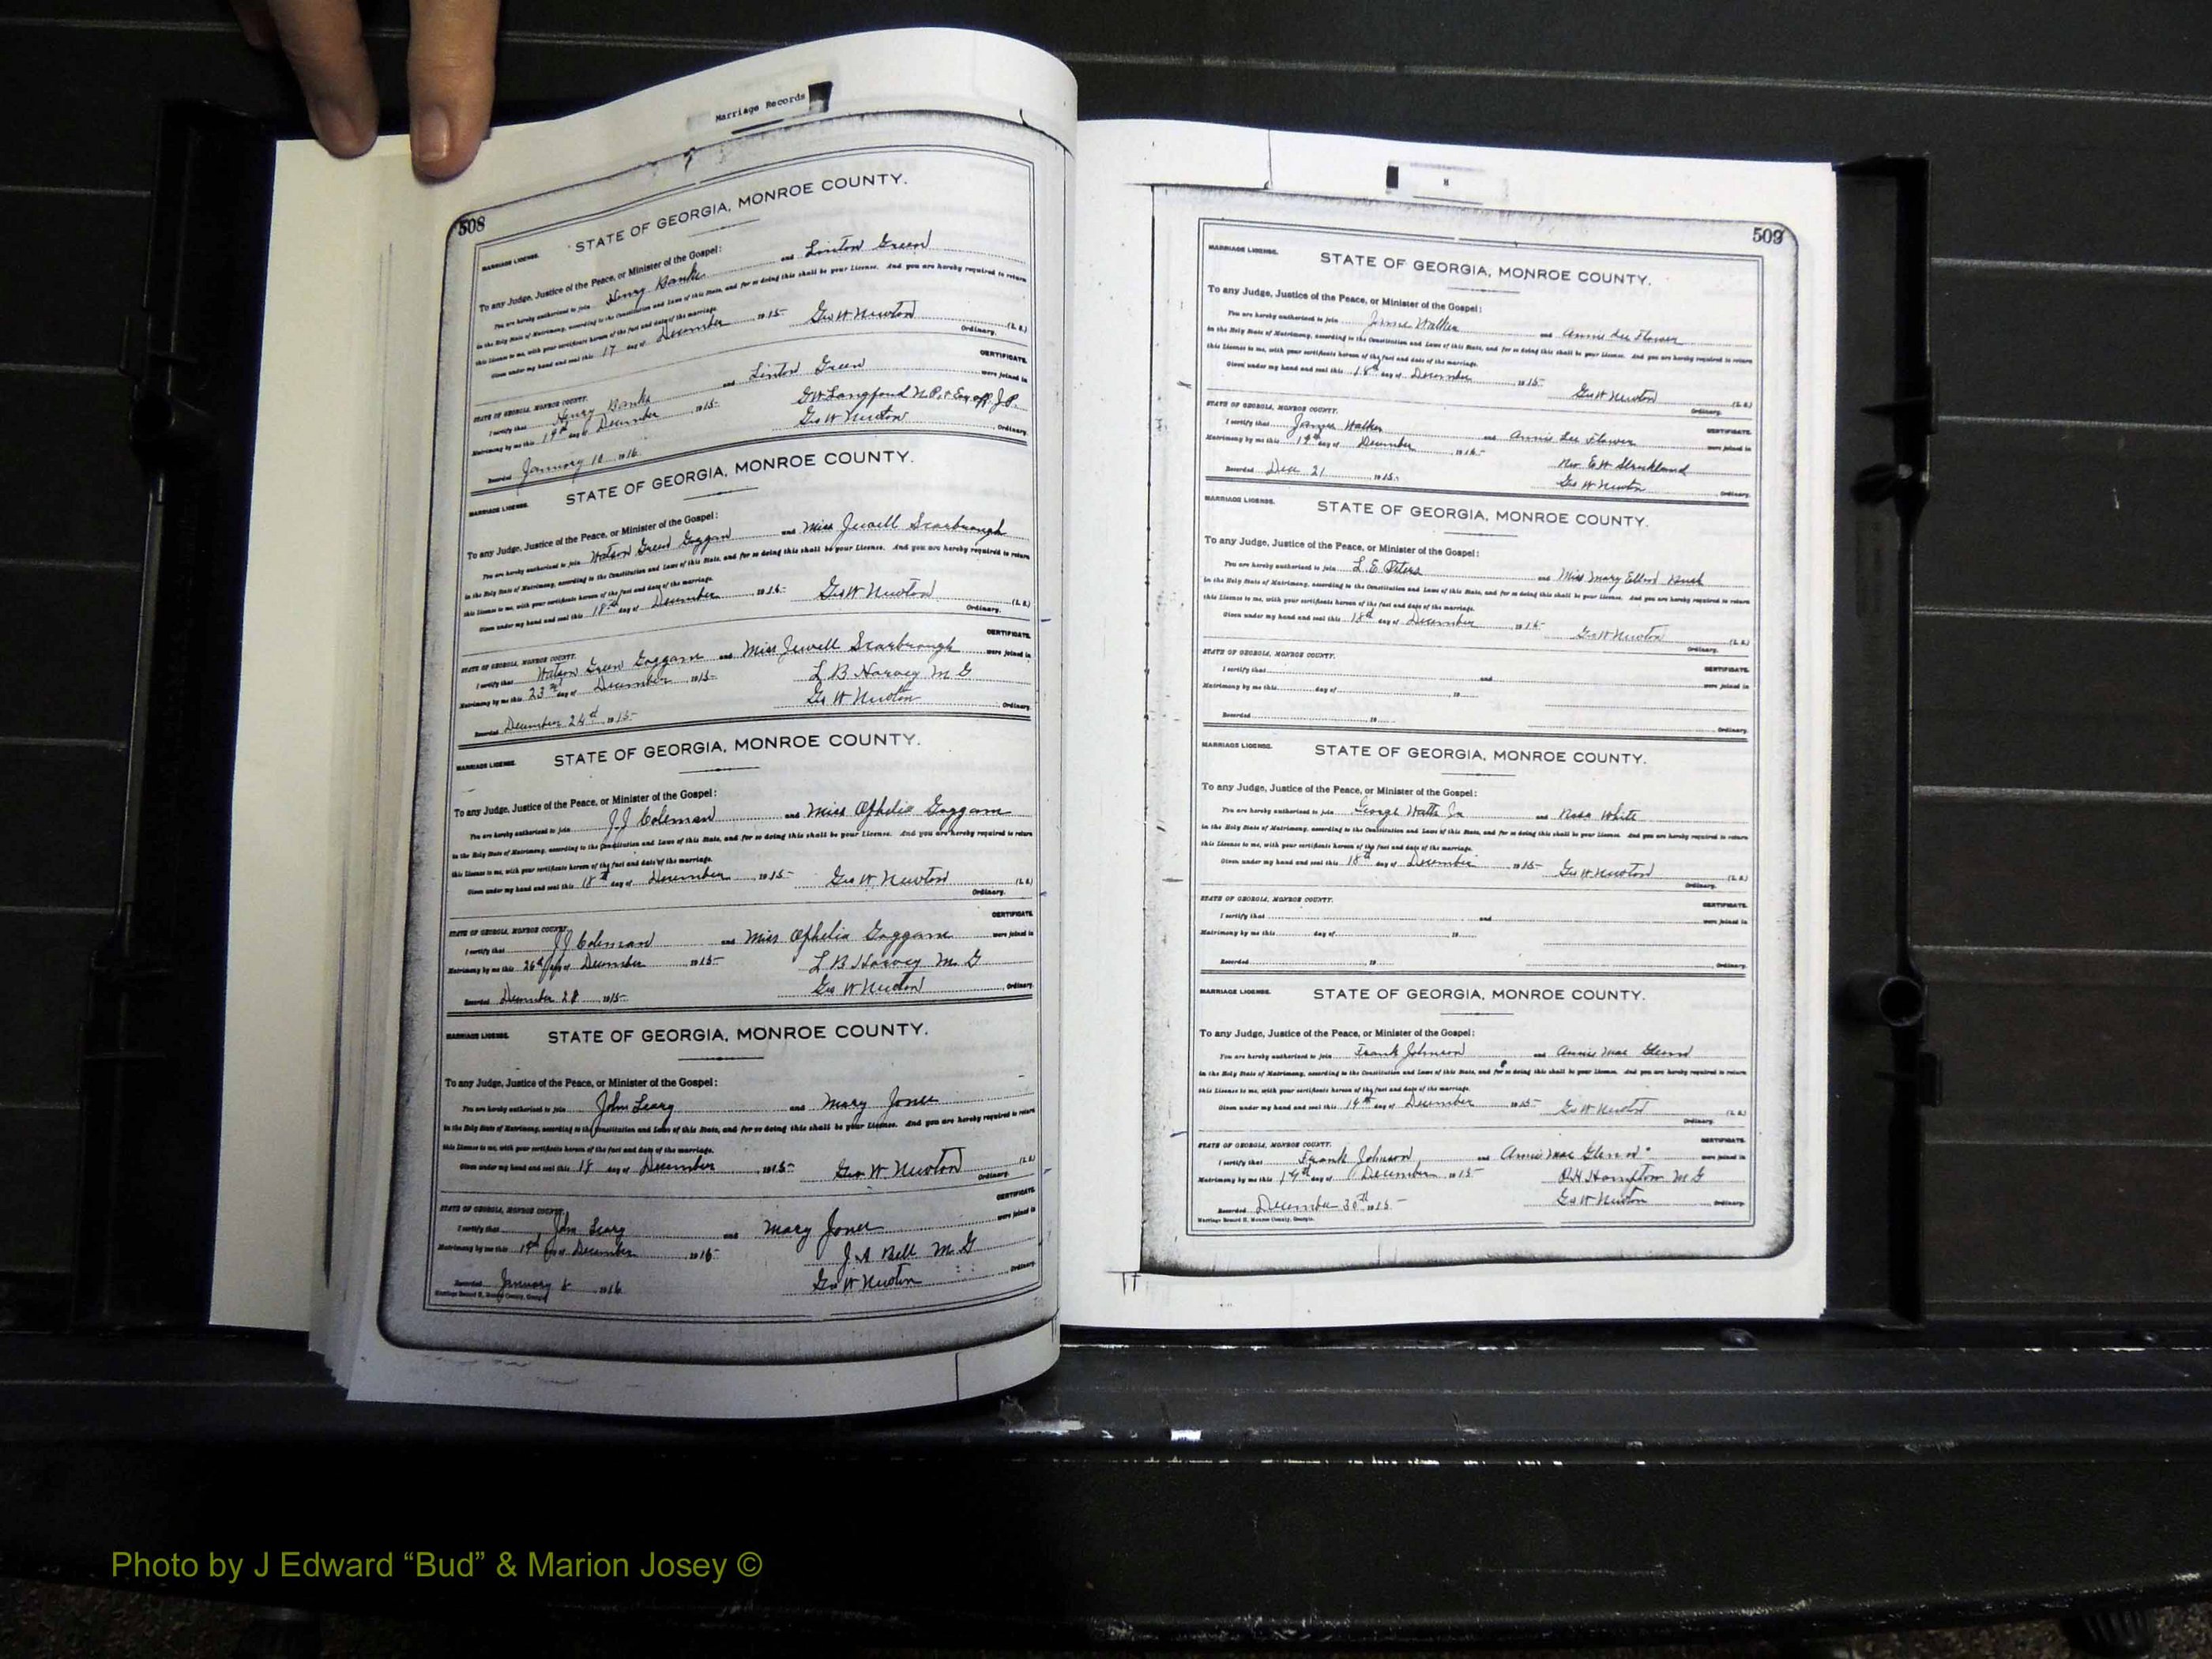 Marriage Records
508
MARRIAGE LICENSE.
STATE OF GEORGIA, MONROE COUNTY.
To any Judge, Justice of the Peace, or Minister of the Gospel:
You are hereby authorized to join Henry Banks and Linton Green
in the Holy State of Matrimony, according to the Constitution and Laws of this State, and for so doing this shall be your License. And you are hereby required to return
this License to me, with your certificate hereon of the fact and date of the marriage.
Given under my hand and seal this 17 day of December, 1915 Geo W Newton (L. S.)
Ordinary.
STATE OF GEORGIA, MONROE COUNTY. CERTIFICATE.
I certify that Henry Banks and Linton Green were joined in
Matrimony by me this 19th day of December, 1915 GW Langford N.P. & Exoff J.P.
Recorded January 10 1916. Geo W Newton, Ordinary.
MARRIAGE LICENSE.
STATE OF GEORGIA, MONROE COUNTY.
To any Judge, Justice of the Peace, or Minister of the Gospel:
You are hereby authorized to join Watson Green Goggin and Miss Jewell Scarbrough
in the Holy State of Matrimony, according to the Constitution and Laws of this State, and for so doing this shall be your License. And you are hereby required to return
this License to me, with your certificate hereon of the fact and date of the marriage.
Given under my hand and seal this 18th day of December, 1915 Geo W Newton (L. S.)
Ordinary.
STATE OF GEORGIA, MONROE COUNTY. CERTIFICATE.
I certify that Watson Green Goggans and Miss Jewell Scarbrough were joined in
Matrimony by me this 23rd day of December, 1915 L B Harvey M G
Recorded December 24th 1915 Geo W Newton, Ordinary.
MARRIAGE LICENSE.
STATE OF GEORGIA, MONROE COUNTY.
To any Judge, Justice of the Peace, or Minister of the Gospel:
You are hereby authorized to join J.J Coleman and Miss Ophelia Goggans
in the Holy State of Matrimony, according to the Constitution and Laws of this State, and for so doing this shall be your License. And you are hereby required to return
this License to me, with your certificate hereon of the fact and date of the marriage.
Given under my hand and seal this 18th day of December, 1915 Geo W Newton (L. S.)
Ordinary.
STATE OF GEORGIA, MONROE COUNTY. CERTIFICATE.
I certify that J J Coleman and Miss Ophelia Goggans were joined in
Matrimony by me this 26th day of December, 1915 L B Harvey M. G
Recorded December 28 1915 Geo W Newton, Ordinary.
MARRIAGE LICENSE.
STATE OF GEORGIA, MONROE COUNTY.
To any Judge, Justice of the Peace, or Minister of the Gospel:
You are hereby authorized to join John and Mary Jones
in the Holy State of Matrimony, according to the Constitution and Laws of this State, and for so doing this shall be your License. And you are hereby required to return
this License to me, with your certificate hereon of the fact and date of the marriage.
Given under my hand and seal this 18 day of December, 1915 Geo W Newton (L. S.)
Ordinary.
STATE OF GEORGIA, MONROE COUNTY. CERTIFICATE.
I certify that John and Mary Jones were joined in
Matrimony by me this 19th day of December, 1915 J. A Bell M. G
Recorded January 8 1916 Geo W Newton Ordinary.
Marriage Record H, Monroe County, Georgia.
H
509
MARRIAGE LICENSE.
STATE OF GEORGIA, MONROE COUNTY.
To any Judge, Justice of the Peace, or Minister of the Gospel:
You are hereby authorized to join Walker and Annie Lee Flower
in the Holy State of Matrimony, according to the Constitution and Laws of this State, and for so doing this shall be your License. And you are hereby required to return
this License to me, with your certificate hereon of the fact and date of the marriage.
Given under my hand and seal this 18th day of December, 1915
Geo W Newton (L. S.)
Ordinary.
STATE OF GEORGIA, MONROE COUNTY. CERTIFICATE.
I certify that Walker and Annie Lee Flower were joined in
Matrimony by me this 19th day of December, 1915 Rev E W Strickland
Recorded Dec 21, 1915. Geo W Newton, Ordinary.
MARRIAGE LICENSE.
STATE OF GEORGIA, MONROE COUNTY.
To any Judge, Justice of the Peace, or Minister of the Gospel:
You are hereby authorized to join L. E. Peters and Miss Mary Ellen
in the Holy State of Matrimony, according to the Constitution and Laws of this State, and for so doing this shall be your License. And you are hereby required to return
this License to me, with your certificate hereon of the fact and date of the marriage.
Given under my hand and seal this 18th day of December, 1915 Geo W Newton (L. S.)
Ordinary.
STATE OF GEORGIA, MONROE COUNTY. CERTIFICATE.
I certify that and were joined in
Matrimony by me this day of, 19
Recorded, 19 Ordinary.
MARRIAGE LICENSE.
STATE OF GEORGIA, MONROE COUNTY.
To any Judge, Justice of the Peace, or Minister of the Gospel:
You are hereby authorized to join George Watts Jr and Rosa White
in the Holy State of Matrimony, according to the Constitution and Laws of this State, and for so doing this shall be your License. And you are hereby required to return
this License to me, with your certificate hereon of the fact and date of the marriage.
Given under my hand and seal this 18th day of December, 1915 Geo W Newton (L. S.)
Ordinary.
STATE OF GEORGIA, MONROE COUNTY. CERTIFICATE.
I certify that and were joined in
Matrimony by me this day of, 19
Recorded, 19 Ordinary.
MARRIAGE LICENSE.
STATE OF GEORGIA, MONROE COUNTY.
To any Judge, Justice of the Peace, or Minister of the Gospel:
You are hereby authorized to join Frank Johnson and Annie Mae Glenn
in the Holy State of Matrimony, according to the Constitution and Laws of this State, and for so doing this shall be your License. And you are hereby required to return
this License to me, with your certificate hereon of the fact and date of the marriage.
Given under my hand and seal this 19th day of December 1915 Geo W Newton (L. S.)
Ordinary.
STATE OF GEORGIA, MONROE COUNTY. CERTIFICATE.
I certify that Frank Johnson and Annie Mae Glenn were joined in
Matrimony by me this 19th day of December, 1915 Hampton M G
Recorded December 30th 1915 Geo W Newton, Ordinary.
Marriage Record H, Monroe County, Georgia.
Photo by J Edward “Bud” & Marion Josey ©